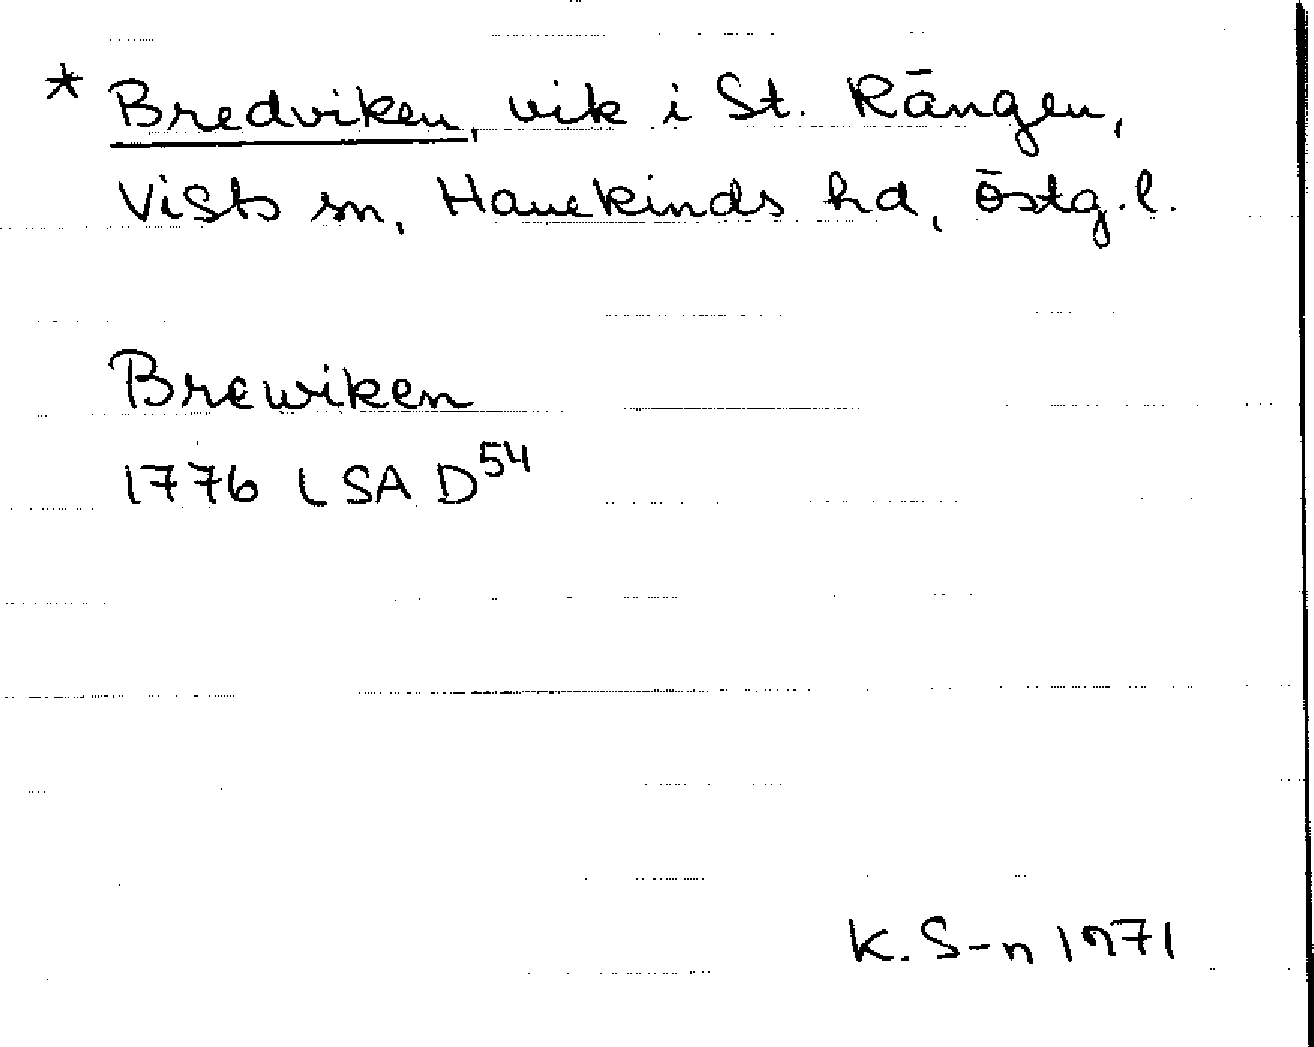 * Bredviken, vik i St. Rängen,
Vists sn, Hanekinds hd, Östg. l.
Brewiken
1776 LSA D54
K. S-n 1971